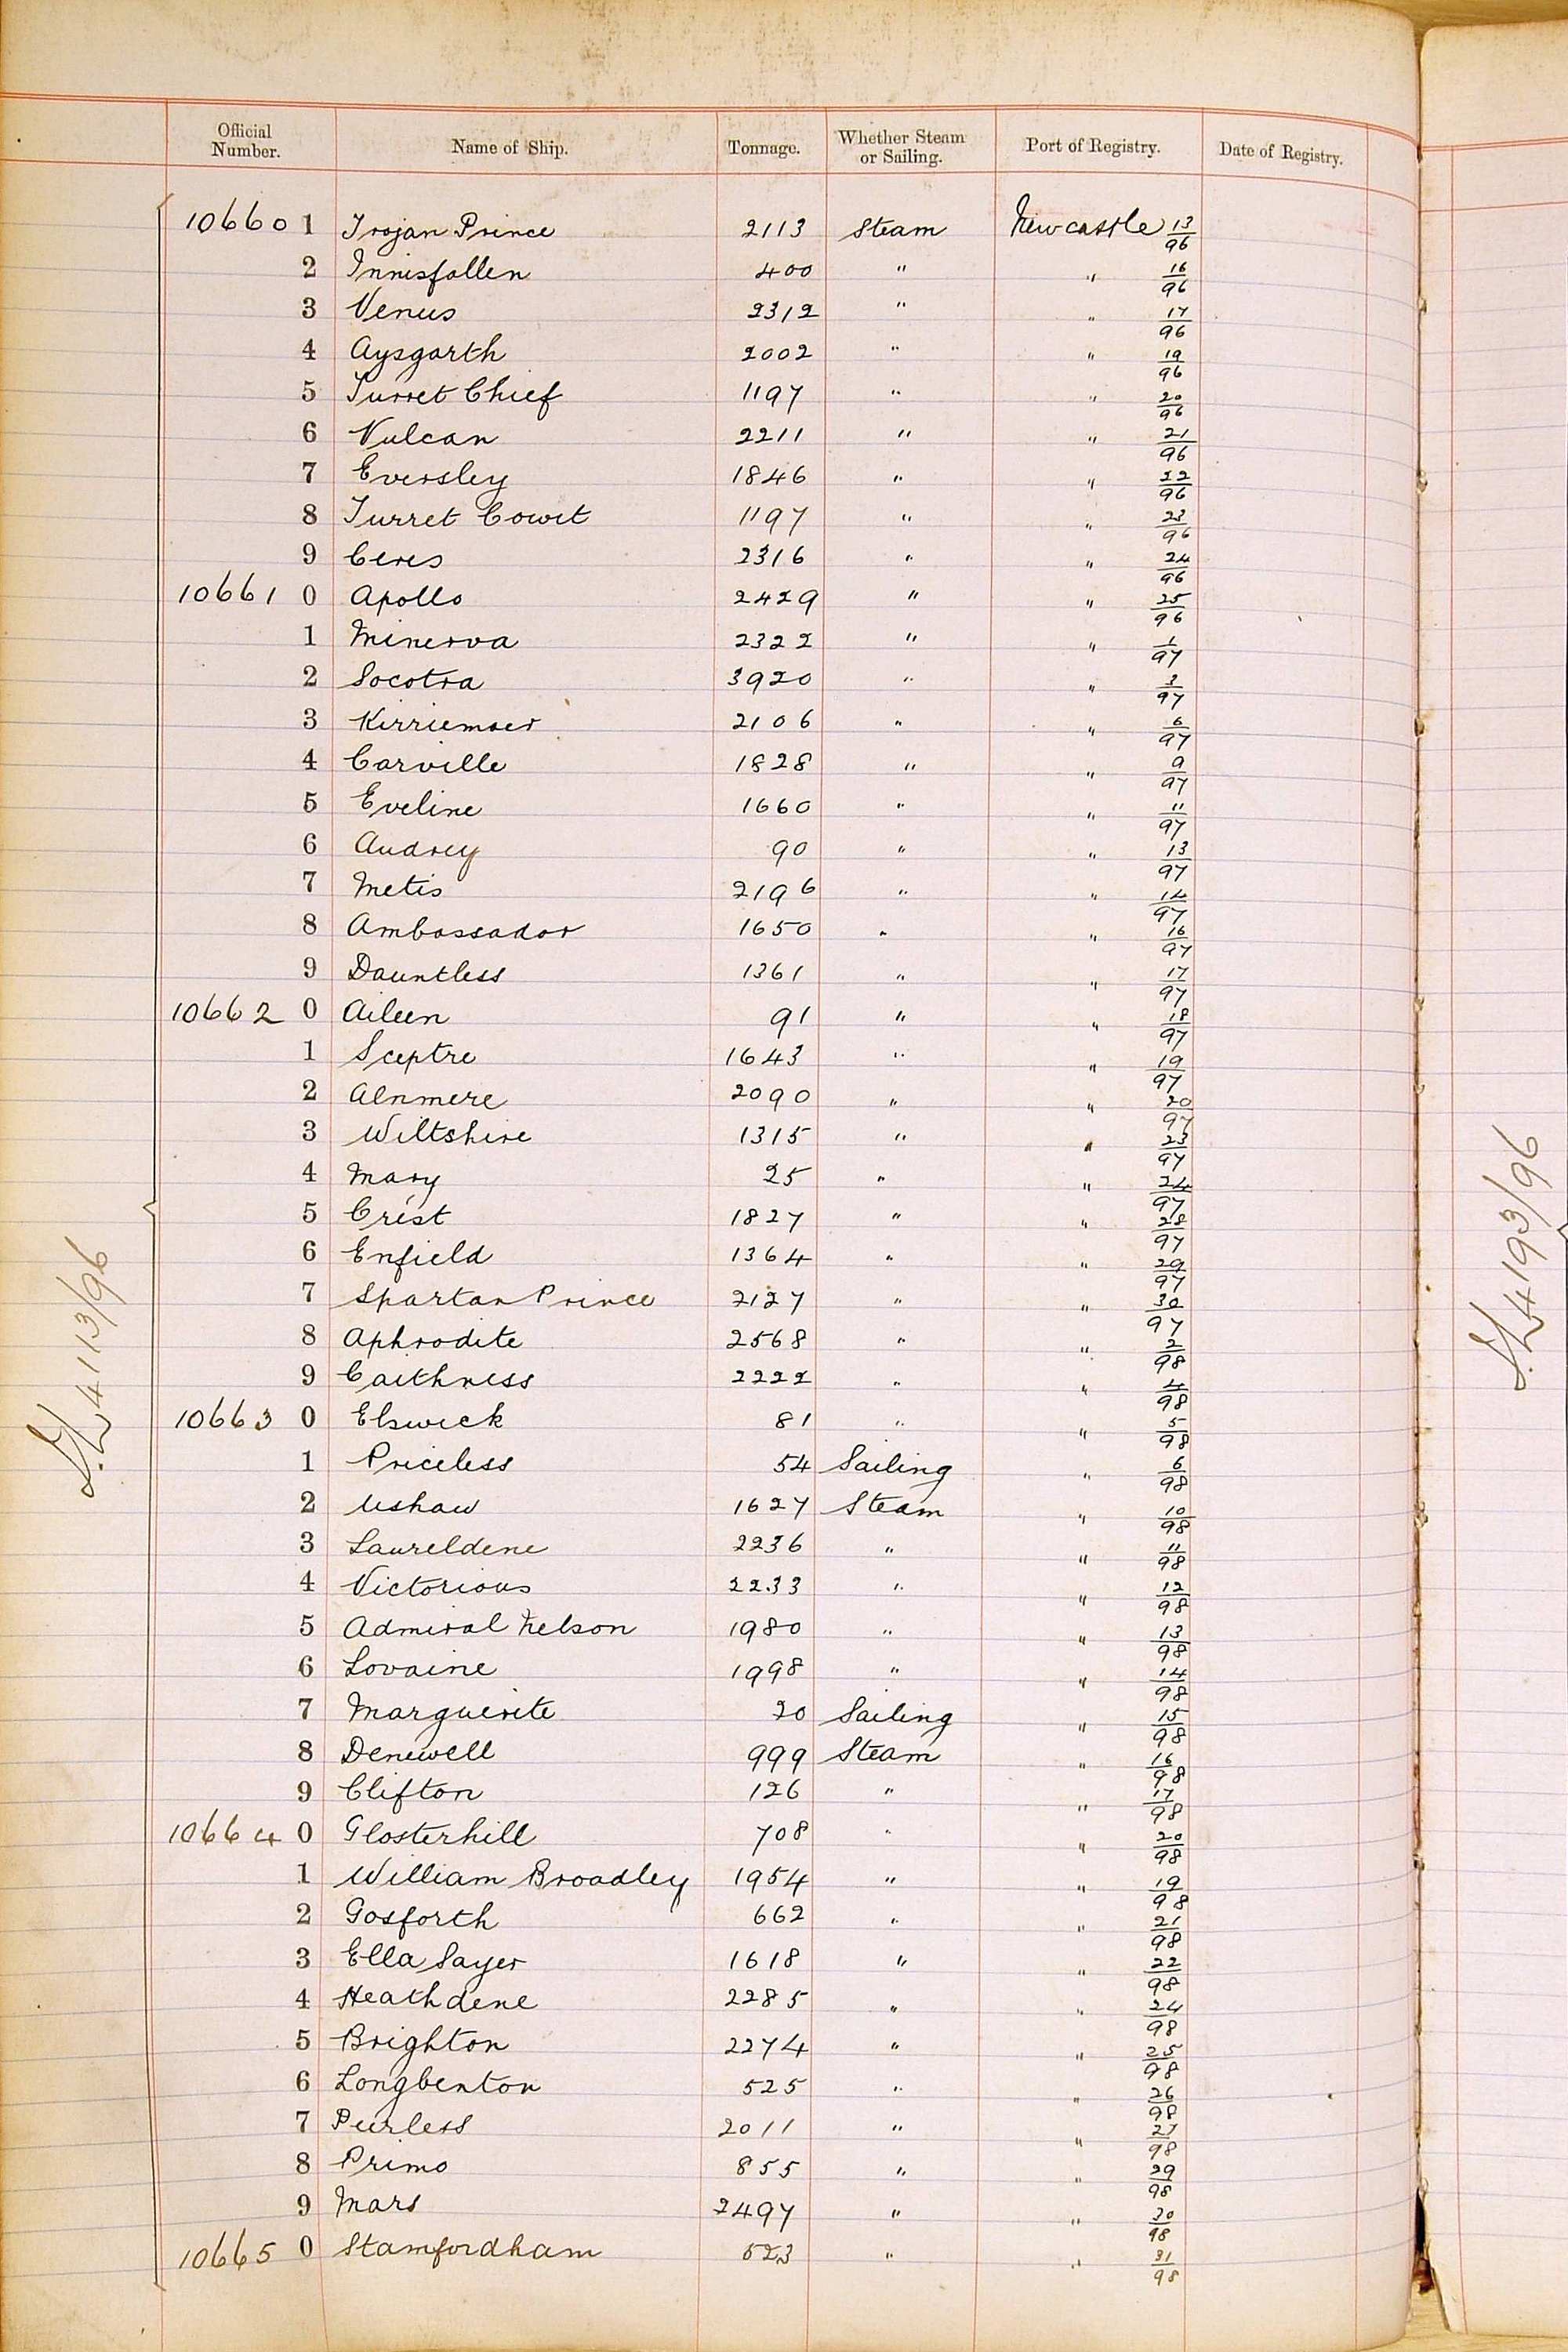 Official Number. Name of Ship. Tonnage. Whether Steam or Sailing. Port of Registry. Date of Registry.
10660 1 Trojan Prince 2113 Steam Newcastle 13/96
2 Innisfallen 400 " " 16/96
3 Venus 2312 " " 17/96
4 Aysgarth 2002 " " 19/96
5 Turret Chief 1197 " " 20/96
6 Vulcan 2211 " " 21/96
7 Eversley 1846 " " 22/96
8 Turret Court 1197 " " 23/96
9 Ceres 2316 " " 24/96
10661 0 Apollo 2429 " " 25/96
1 Minerva 2322 " " 1/97
2 Socotra 3920 " " 3/97
3 Kirriemoer 2106 " " 6/97
4 Carville 1828 " " 9/97
5 Eveline 1660 " " 11/97
6 Audrey 90 " " 13/97
7 Metis 2196 " " 14/97
8 Ambassador 1650 " " 16/97
9 Dauntless 1361 " " 17/97
10662 0 Aileen 91 " " 18/97
1 Sceptre 1643 " " 19/97
2 Alnmere 2090 " " 20/97
3 Wiltshire 1315 " " 23/97
4 Mary 25 " " 24/97
5 Crest 1827 " " 28/97
6 Enfield 1364 " " 29/97
7 Spartan Prince 2127 " " 30/97
8 Aphrodite 2568 " " 2/98
9 Caithness 2222 " " 4/98
10663 0 Elswick 81 " " 5/98
1 Priceless 54 Sailing " 6/98
2 Ushaw 1627 Steam " 10/98
3 Laureldene 2236 " " 11/98
4 Victorious 2233 " " 12/98
5 Admiral Nelson 1980 " " 13/98
6 Lovaine 1998 " " 14/98
7 Marguerite 20 Sailing " 15/98
8 Denewell 999 Steam " 16/98
9 Clifton 126 " " 17/98
10664 0 Glosterhill 708 " " 20/98
1 William Broadley 1954 " " 19/98
2 Gosforth 662 " " 21/98
3 Ella Sayer 1618 " " 22/98
4 Heathdene 2285 " " 24/98
5 Brighton 2274 " " 25/98
6 Longbenton 525 " " 26/98
7 Peerless 2011 " " 27/98
8 Primo 855 " " 29/98
9 Mars 2497 " " 30/98
10665 0 Stamfordham 523 " " 31/98
4113/96
4193/96